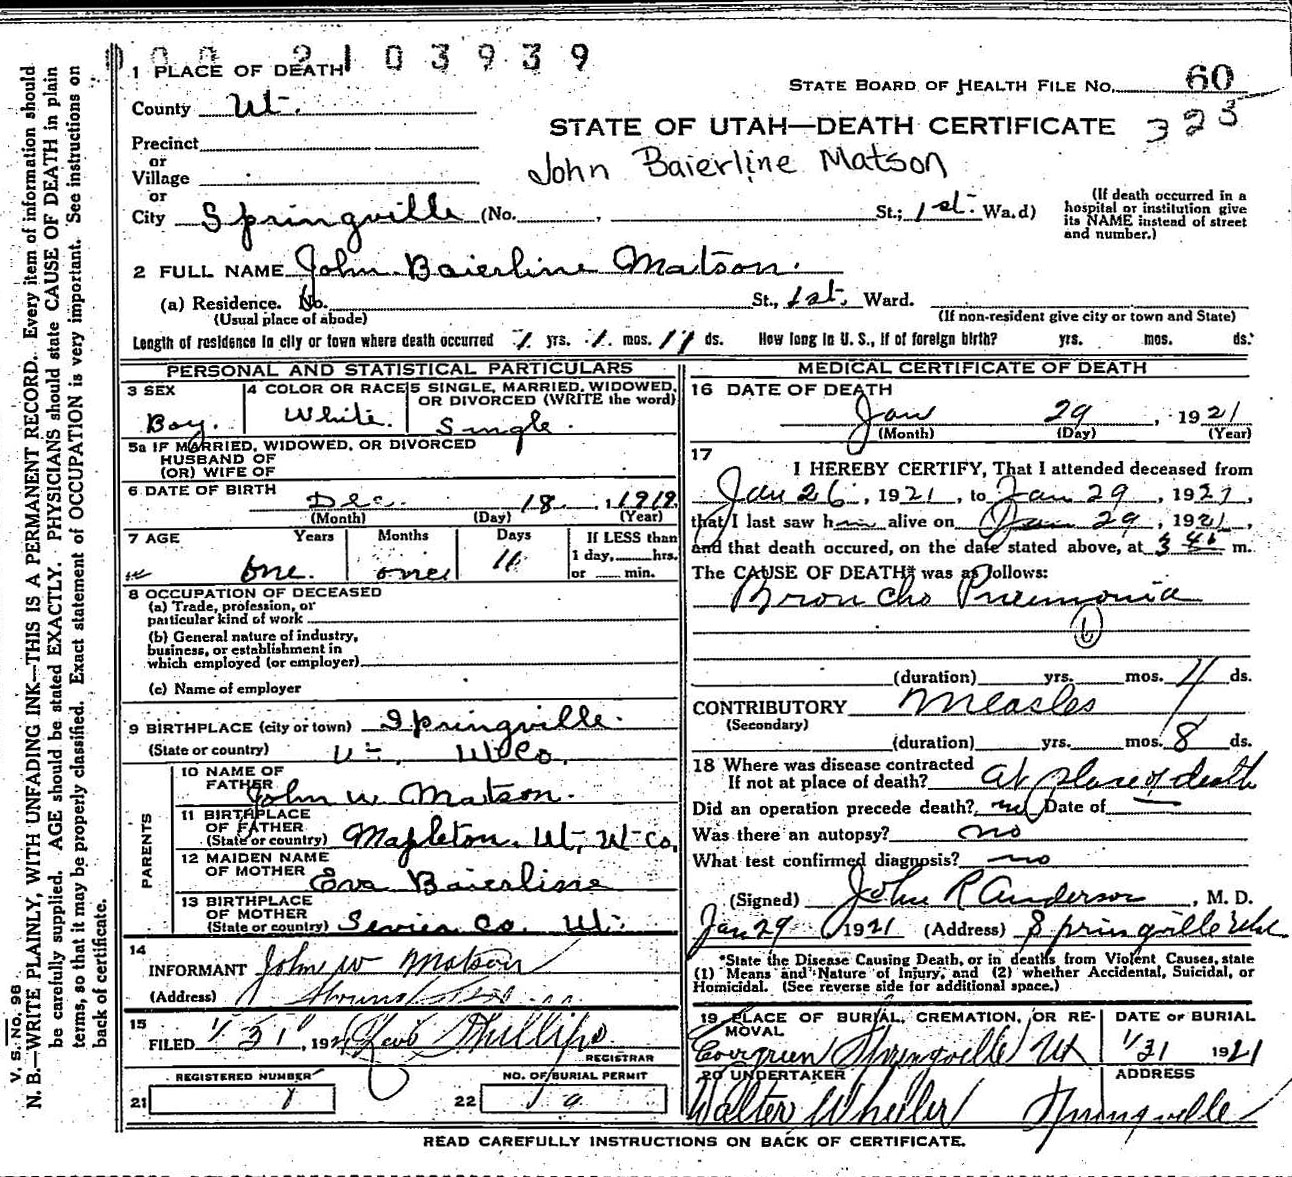 2103939
1 PLACE OF DEATH
STATE BOARD OF HEALTH FILE No. 60
County Ut.
323
STATE OF UTAH—DEATH CERTIFICATE
Precinct
John Baierline Matson
or
Village
or
City Springville (No. , St.; 1st. Wa.d)
(If death occurred in a hospital or institution give its NAME instead of street and number.)
2 FULL NAME John Baierline Matson.
(a) Residence. No. St., 1st, Ward.
(Usual place of abode)
(If non-resident give city or town and State)
Length of residence in city or town where death occurred 1 yrs. 1 mos. 11 ds. How long in U. S., if of foreign birth? yrs. mos. ds.
PERSONAL AND STATISTICAL PARTICULARS
3 SEX
Boy.
4 COLOR OR RACE
White.
5 SINGLE, MARRIED, WIDOWED, OR DIVORCED (WRITE the word)
Single.
5a IF MARRIED, WIDOWED, OR DIVORCED
HUSBAND OF
(OR) WIFE OF
6 DATE OF BIRTH
Dec. 18, 1919.
(Month) (Day) (Year)
7 AGE Years Months Days If LESS than
1 day, hrs.
or min.
one. one 11
8 OCCUPATION OF DECEASED
(a) Trade, profession, or
particular kind of work
(b) General nature of industry,
business, or establishment in
which employed (or employer)
(c) Name of employer
9 BIRTHPLACE (city or town) Springville.
(State or country) Ut. Ut Co.
PARENTS
10 NAME OF FATHER John W Matson.
11 BIRTHPLACE OF FATHER (State or country) Mapleton, Ut, Ut Co.
12 MAIDEN NAME OF MOTHER Eva Baierline
13 BIRTHPLACE OF MOTHER (State or country) Sevier Co. Ut.
14
INFORMANT John W Matson
(Address)
15
FILED 1/31, 1921 Phillips
REGISTRAR
REGISTERED NUMBER
21
NO. OF BURIAL PERMIT
22
MEDICAL CERTIFICATE OF DEATH
16 DATE OF DEATH
Jan 29, 1921
(Month) (Day) (Year)
17
I HEREBY CERTIFY, That I attended deceased from
Jan 26, 1921, to Jan 29, 1921,
that I last saw him alive on Jan 29, 1921,
and that death occured, on the date stated above, at 3 45 m.
The CAUSE OF DEATH* was as follows:
Broncho Pneumonia
(duration) yrs. mos. 4 ds.
CONTRIBUTORY Measles
(Secondary)
(duration) yrs. mos. 8 ds.
18 Where was disease contracted
If not at place of death? at place of death
Did an operation precede death? no Date of
Was there an autopsy? no
What test confirmed diagnosis? no
(Signed) John R Anderson, M. D.
Jan 29 1921 (Address) Springville Utah
*State the Disease Causing Death, or in deaths from Violent Causes, state
(1) Means and Nature of Injury, and (2) whether Accidental, Suicidal, or
Homicidal. (See reverse side for additional space.)
19 PLACE OF BURIAL, CREMATION, OR REMOVAL
Evergreen Springville Ut
DATE OF BURIAL
1/31 1921
20 UNDERTAKER
Walter Wheeler
ADDRESS
Springville
READ CAREFULLY INSTRUCTIONS ON BACK OF CERTIFICATE.
V. S. NO. 98
N. B.—WRITE PLAINLY, WITH UNFADING INK—THIS IS A PERMANENT RECORD. Every item of information should
be carefully supplied. AGE should be stated EXACTLY. PHYSICIANS should state CAUSE OF DEATH in plain
terms, so that it may be properly classified. Exact statement of OCCUPATION is very important. See instructions on
back of certificate.